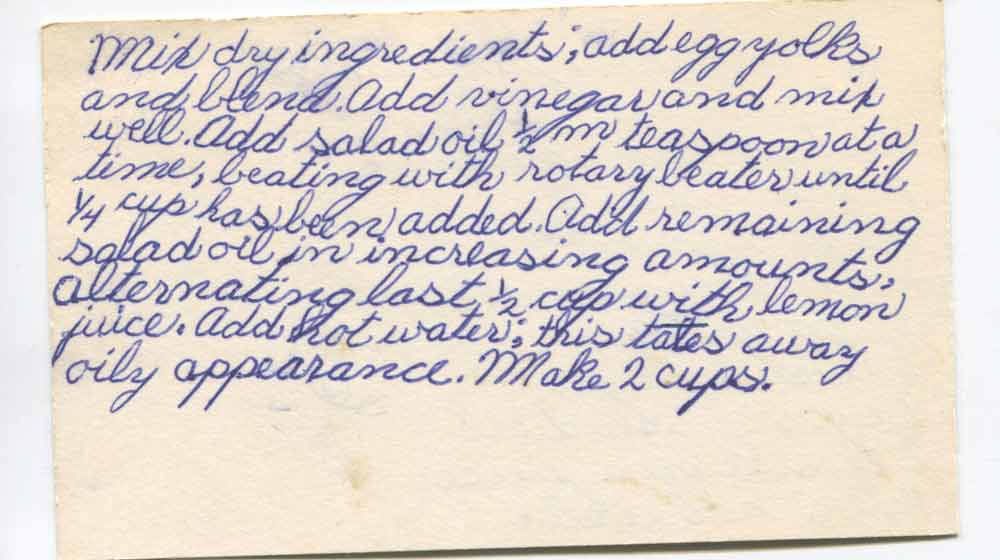 Mix dry ingredients; add egg yolks
and blend. Add vinegar and mix
well. Add salad oil ½ m teaspoon at a
time, beating with rotary beater until
¼ cup has been added. Add remaining
salad oil in increasing amounts,
alternating last ½ cup with lemon
juice. Add hot water; this tates away
oily appearance. Make 2 cups.